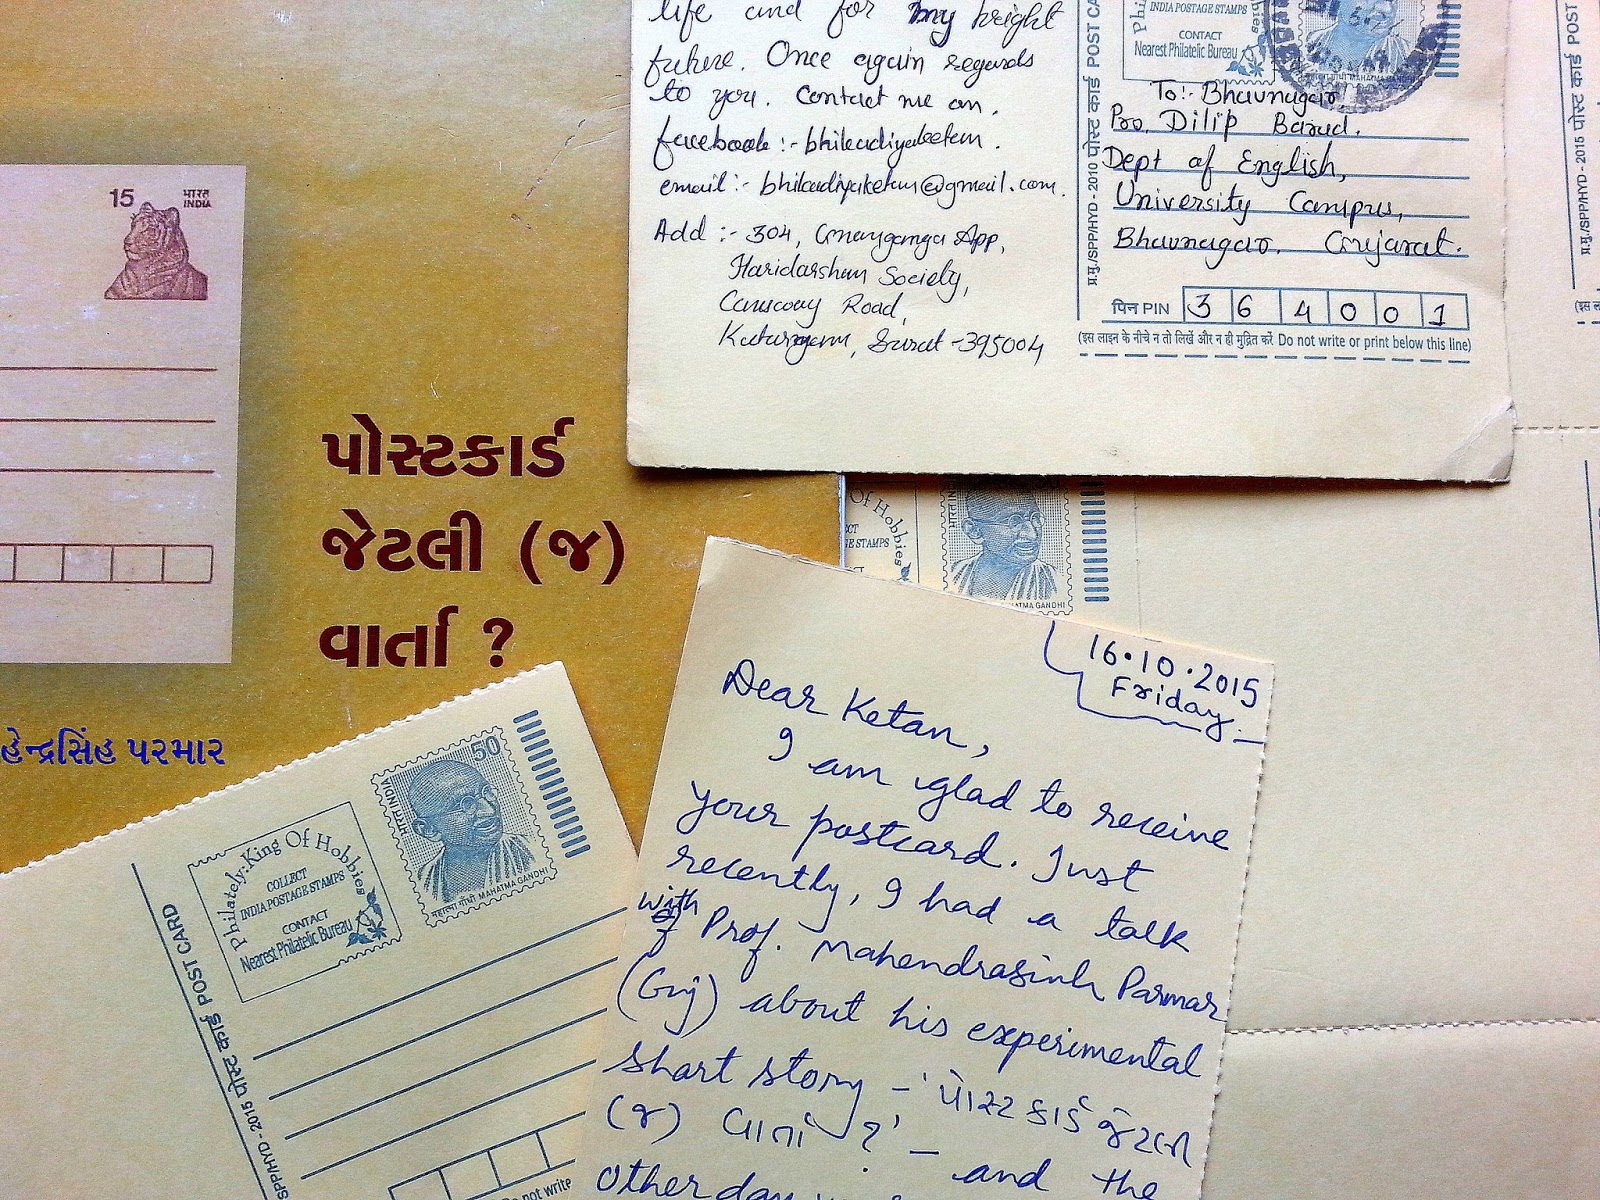 15
भारत
INDIA
પોસ્ટકાર્ડ
જેટલી (જ)
વાર્તા ?
હેન્દ્રસિંહ પરમાર
life and for my bright
future. Once again regards
to you. Contact me on.
facebook :- bhiladiyaketan.
email :- bhiladiyaketan@gmail.com.
Add :- 304, App,
Haridarshan Society,
Road,
Katargam, Surat - 395004
INDIA POSTAGE STAMPS
CONTACT
Nearest Philatelic Bureau
MAHATMA GANDHI
प्र.मु./SPP/HYD - 2010 पोस्ट कार्ड POST CA
To:- Bhavnagar,
Pro. Dilip Barad.
Dept of English,
University Campus,
Bhavnagar. Gujarat.
पिन PIN 3 6 4 0 0 1
(इस लाइन के नीचे न तो लिखें और न ही मुद्रित करें Do not write or print below this line)
प्र.मु./SPP/HYD - 2015 पोस्ट कार्ड POST
Of Hobbies
E STAMPS
भारत INDIA
ATMA GANDHI
Philately: King Of Hobbies
COLLECT
INDIA POSTAGE STAMPS
CONTACT
Nearest Philatelic Bureau
50
भारत INDIA
महात्मा गाँधी MAHATMA GANDHI
SPP/HYD - 2015 पोस्ट कार्ड POST CARD
not write
16.10.2015
Friday.
Dear Ketan,
I am glad to receive
your postcard. Just
recently, I had a talk
with Prof. Mahendrasinh Parmar
(Guj) about his experimental
short story - 'પોસ્ટકાર્ડ જેટલી
(જ) વાર્તા ?' - and the
other day